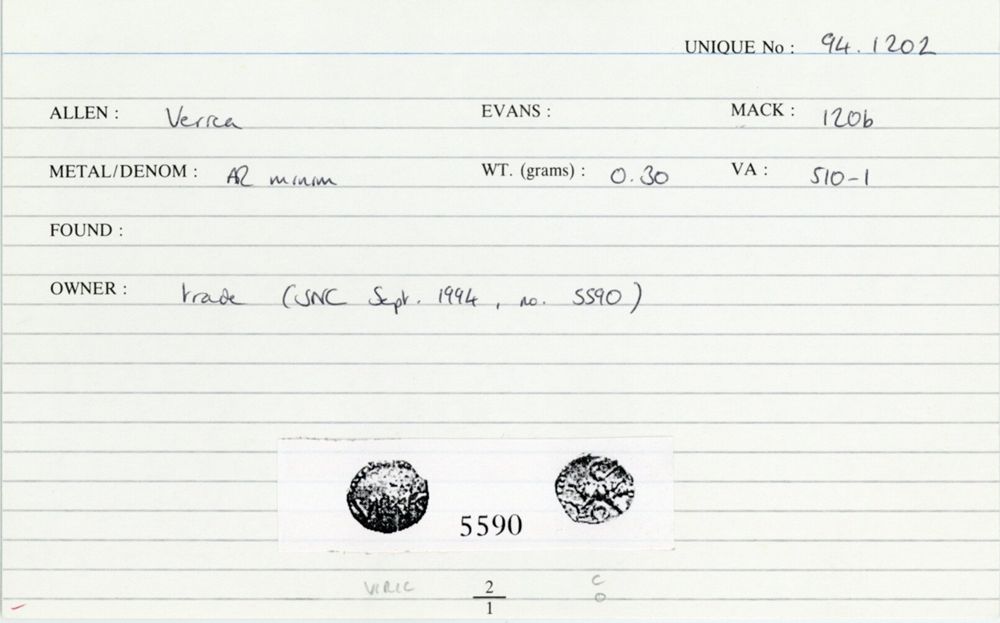 UNIQUE No : 94.1202
ALLEN : Verica EVANS : MACK : 120b
METAL/DENOM : AR minim WT. (grams) : 0.30 VA : 510-1
FOUND :
OWNER : trade (SNC Sept. 1994, no. 5590)
5590
VIRIC 2 C
1 O